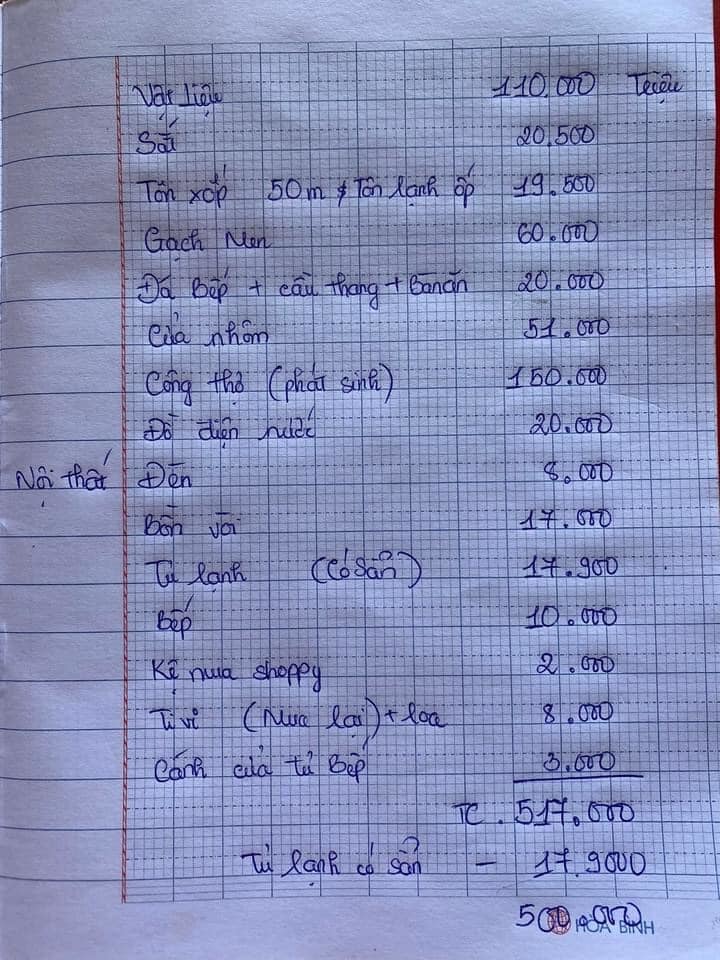 Vật liệu 110.000 Triệu
Sắt 20.500
Tôn xốp 50m + Tôn lạnh ốp 19.500
Gạch Men 60.000
Đá Bếp + cầu thang + Bàn ăn 20.000
Cửa nhôm 51.000
Công thợ (phát sinh) 150.000
Đồ điện nước 20.000
Nội thất Đèn 8.000
Bồn vòi 17.000
Tủ lạnh (Có Sẵn) 17.900
Bếp 10.000
Kệ mua shoppy 2.000
Ti vi (Mua lại) + loa 8.000
Cánh cửa tủ Bếp 3.000
TC. 517.000
Tủ lạnh có sẵn - 17.9000
500.000
HÒA BÌNH